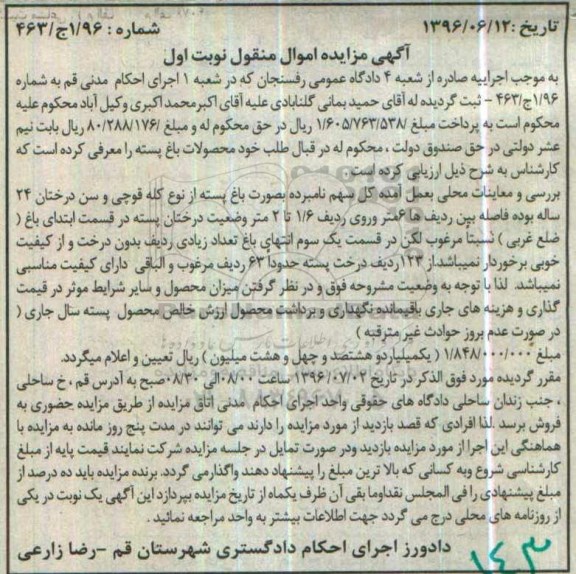 تاریخ :۱۳۹۶/۰۶/۱۲
شماره : ۱/۹۶ج/۴۶۳
آگهی مزایده اموال منقول نوبت اول
به موجب اجراییه صادره از شعبه ۴ دادگاه عمومی رفسنجان که در شعبه ۱ اجرای احکام مدنی قم به شماره
۱/۹۶ج/۴۶۳ – ثبت گردیده له آقای حمید یمانی گلنابادی علیه آقای اکبرمحمد اکبری وکیل آباد محکوم علیه
محکوم است به پرداخت مبلغ /۱/۶۰۵/۷۶۳/۵۳۸ ریال در حق محکوم له و مبلغ /۸۰/۲۸۸/۱۷۶ ریال بابت نیم
عشر دولتی در حق صندوق دولت ، محکوم له در قبال طلب خود محصولات باغ پسته را معرفی کرده است که
کارشناس به شرح ذیل ارزیابی کرده است .
بررسی و معاینات محلی بعمل آمده کل سهم نامبرده بصورت باغ پسته از نوع کله قوچی و سن درختان ۲۴
ساله بوده فاصله بین ردیف ها ۶متر وروی ردیف ۱/۶ تا ۲ متر وضعیت درختان پسته در قسمت ابتدای باغ (
ضلع غربی ) نسبتاً مرغوب لکن در قسمت یک سوم انتهای باغ تعداد زیادی ردیف بدون درخت و از کیفیت
خوبی برخوردار نمیباشد.از ۱۲۳ردیف درخت پسته حدوداً ۶۳ ردیف مرغوب و الباقی دارای کیفیت مناسبی
نمیباشد. لذا با توجه به وضعیت مشروحه فوق و در نظر گرفتن میزان محصول و سایر شرایط موثر در قیمت
گذاری و هزینه های جاری باقیمانده نگهداری و برداشت محصول ارزش خالص محصول پسته سال جاری (
در صورت عدم بروز حوادث غیر مترقبه )
مبلغ ۱/۸۴۸/۰۰۰/۰۰۰ ( یکمیلیاردو هشتصد و چهل و هشت میلیون ) ریال تعیین و اعلام میگردد.
مقرر گردیده مورد فوق الذکر در تاریخ ۱۳۹۶/۰۷/۰۲ ساعت ۰۸/۰۰الی ۰۸/۳۰صبح به آدرس قم ، خ ساحلی
، جنب زندان ساحلی دادگاه های حقوقی واحد اجرای احکام مدنی اتاق مزایده از طریق مزایده حضوری به
فروش برسد .لذا افرادی که قصد بازدید از مورد مزایده را دارند می توانند در مدت پنج روز مانده به مزایده با
هماهنگی این اجرا از مورد مزایده بازدید ودر صورت تمایل در جلسه مزایده شرکت نمایند قیمت پایه از مبلغ
کارشناسی شروع وبه کسانی که بالا ترین مبلغ را پیشنهاد دهند واگذارمی گردد. برنده مزایده باید ده درصد از
مبلغ پیشنهادی را فی المجلس نقداوما بقی آن ظرف یکماه از تاریخ مزایده بپردازد این آگهی یک نوبت در یکی
از روزنامه های محلی درج می گردد جهت اطلاعات بیشتر به واحد مراجعه نمائید .
دادورز اجرای احکام دادگستری شهرستان قم –رضا زارعی
۱۴۳